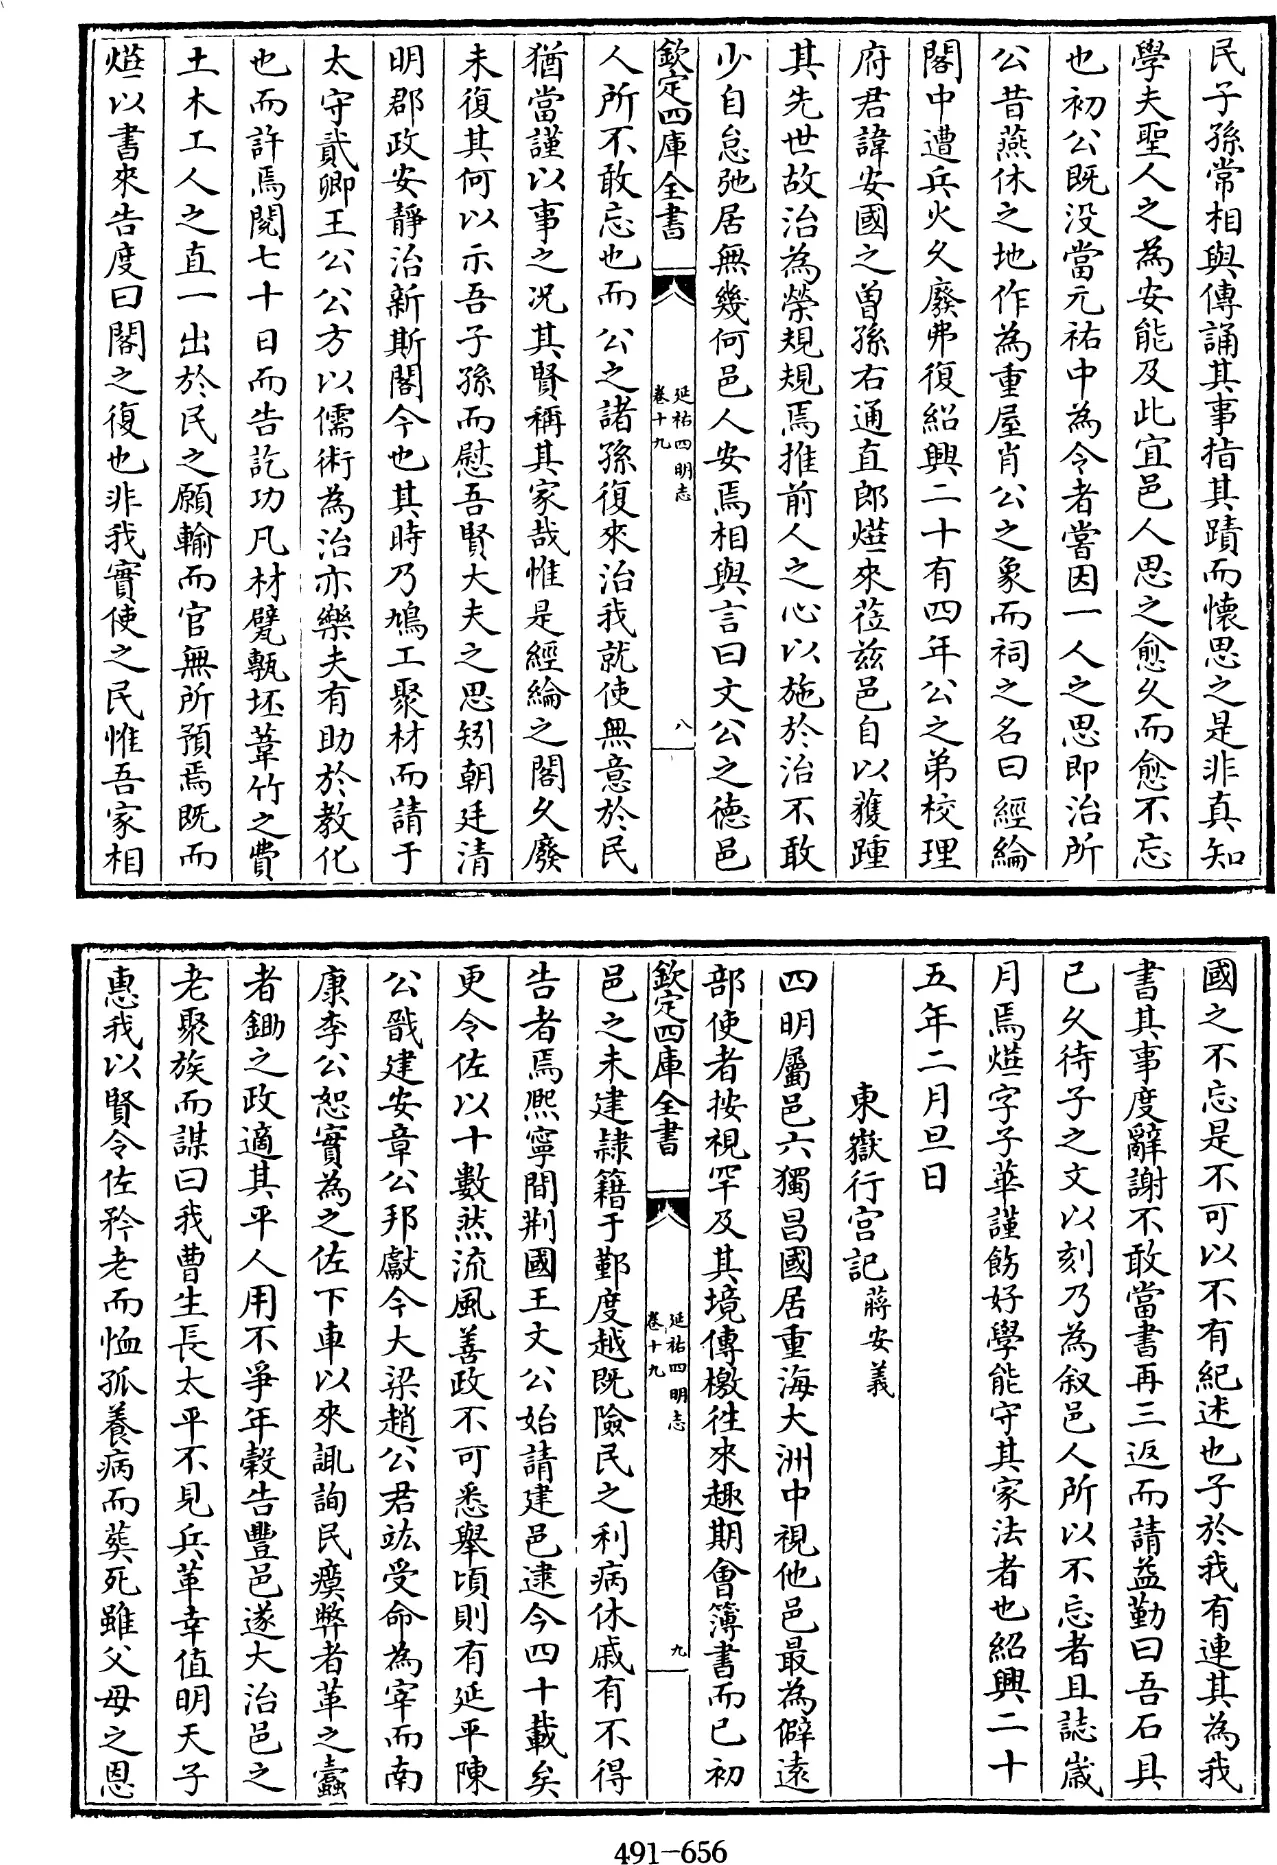 民子孫常相與傳誦其事指其蹟而懷思之是非真知
學夫聖人之為安能及此宜邑人思之愈久而愈不忘
也初公既没當元祐中為令者嘗因一人之思即治所
公昔燕休之地作為重屋肖公之象而祠之名曰經綸
閣中遭兵火久廢弗復紹興二十有四年公之弟校理
府君諱安國之曾孫右通直郎爜來莅兹邑自以獲踵
其先世故治為榮規規焉推前人之心以施於治不敢
少自怠弛居無幾何邑人安焉相與言曰文公之德邑
欽定四庫全書
延祐四明志
卷十九
八
人所不敢忘也而公之諸孫復來治我就使無意於民
猶當謹以事之况其賢稱其家哉惟是經綸之閣久廢
未復其何以示吾子孫而慰吾賢大夫之思矧朝廷清
明郡政安靜治新斯閣今也其時乃鳩工聚材而請于
太守貳卿王公公方以儒術為治亦樂夫有助於教化
也而許焉閱七十日而告訖功凡材甓甎坯葦竹之費
土木工人之直一出於民之願輸而官無所預焉既而
爜以書來告度曰閣之復也非我實使之民惟吾家相
國之不忘是不可以不有紀述也子於我有連其為我
書其事度辭謝不敢當書再三返而請益勤曰吾石具
已久待子之文以刻乃為叙邑人所以不忘者且誌嵗
月焉爜字子華謹飭好學能守其家法者也紹興二十
五年二月旦日
東嶽行宫記 蔣安義
四明屬邑六獨昌國居重海大洲中視他邑最為僻逺
部使者按視罕及其境傳檄往來趣期會簿書而已初
欽定四庫全書
延祐四明志
卷十九
九
邑之未建隷籍于鄞度越既險民之利病休戚有不得
告者焉熈寧間荆國王文公始請建邑逮今四十載矣
更令佐以十數然流風善政不可悉舉頃則有延平陳
公戩建安章公邦獻今大梁趙公君竑受命為宰而南
康李公恕實為之佐下車以來諏詢民瘼弊者革之蠧
者鋤之政適其平人用不爭年穀告豐邑遂大治邑之
老聚族而謀曰我曹生長太平不見兵革幸值明天子
惠我以賢令佐矜老而恤孤養病而葬死雖父母之恩
491-656